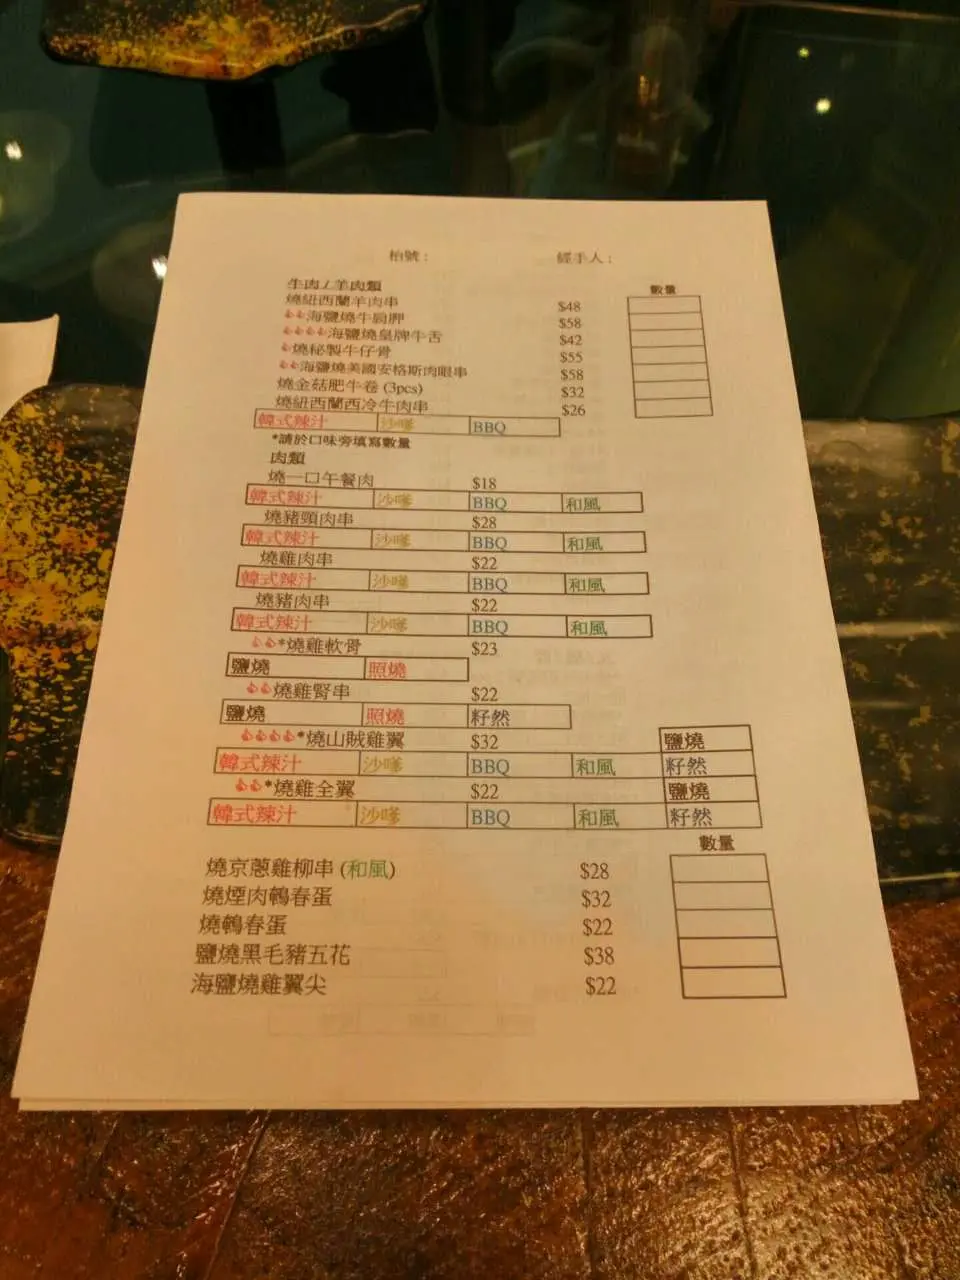 枱號： 經手人：
牛肉/羊肉類 數量
燒紐西蘭羊肉串 $48
海鹽燒牛扇胛 $58
海鹽燒皇牌牛舌 $42
燒秘製牛仔骨 $55
海鹽燒美國安格斯肉眼串 $58
燒金菇肥牛卷 (3pcs) $32
燒紐西蘭西冷牛肉串 $26
韓式辣汁 沙嗲 BBQ
*請於口味旁填寫數量
肉類
燒一口午餐肉 $18
韓式辣汁 沙嗲 BBQ 和風
燒豬頸肉串 $28
韓式辣汁 沙嗲 BBQ 和風
燒雞肉串 $22
韓式辣汁 沙嗲 BBQ 和風
燒豬肉串 $22
韓式辣汁 沙嗲 BBQ 和風
*燒雞軟骨 $23
鹽燒 照燒
燒雞腎串 $22
鹽燒 照燒 籽然
*燒山賊雞翼 $32 鹽燒
韓式辣汁 沙嗲 BBQ 和風 籽然
*燒雞全翼 $22 鹽燒
韓式辣汁 沙嗲 BBQ 和風 籽然
數量
燒京蔥雞柳串 (和風) $28
燒煙肉鵪春蛋 $32
燒鵪春蛋 $22
鹽燒黑毛豬五花 $38
海鹽燒雞翼尖 $22